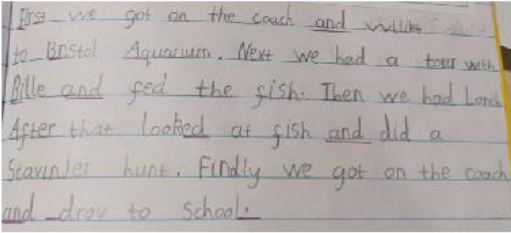 First we got on the coach and
to Bristol Aquarium. Next we had a tour with
Bille and fed the fish. Then we had Lunch
After that looked at fish and did a
Scavinler hunt. Findly we got on the coach
and drov to school.